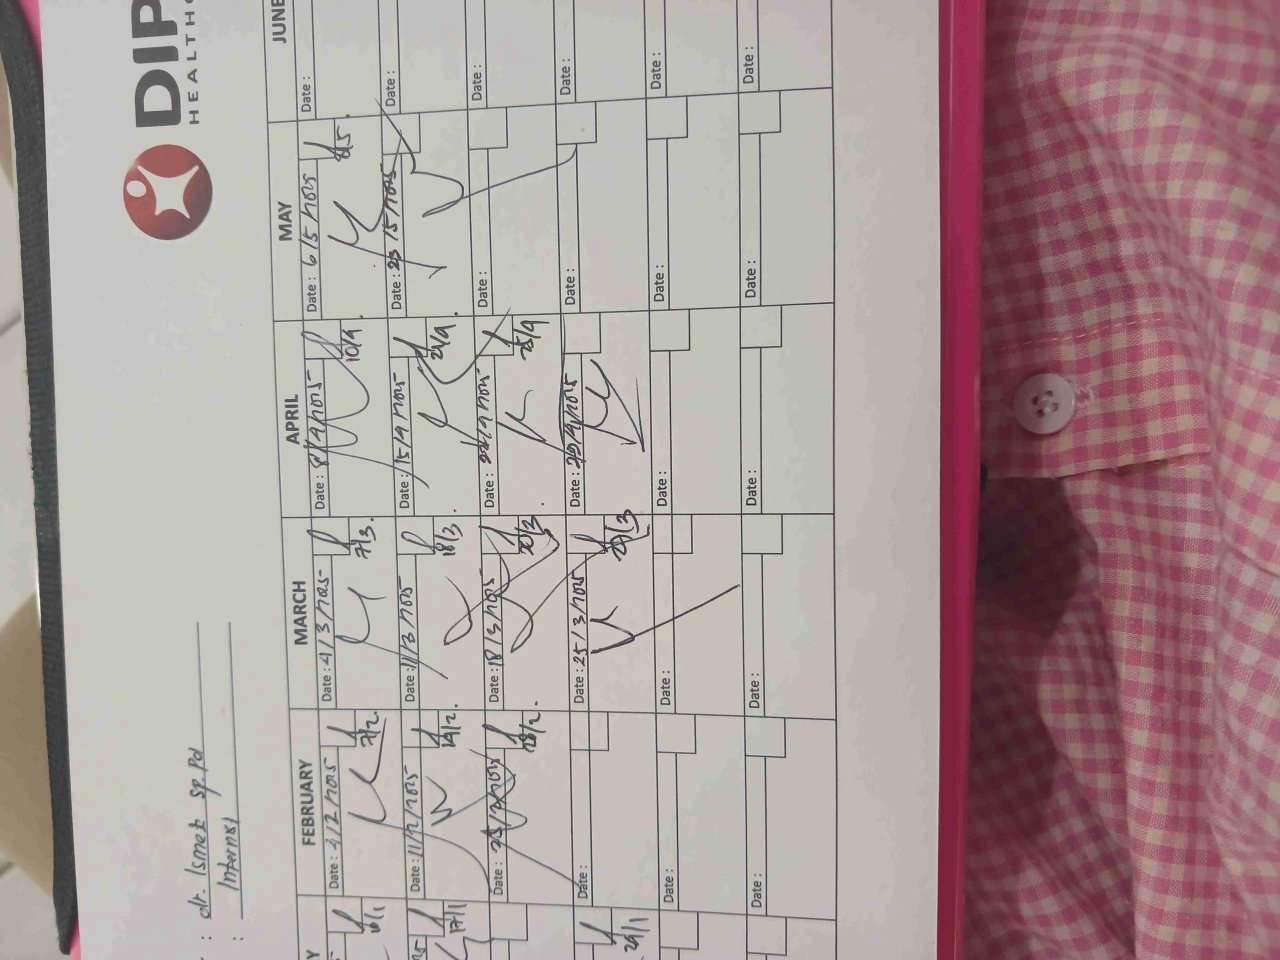 DIP
HEALTHC
: dr. Ismet Sp.Pd
: Internist
Y FEBRUARY MARCH APRIL MAY JUNE
Date : 4/2/2025 Date : 4/3/2025 Date : 8/4/2025 Date : 6/5/2025 Date :
7/2. 7/3. 10/4. 8/5.
Date : 11/2/2025 Date : 11/3/2025 Date : 15/4/2025 Date : 23/5/2025 Date :
17/1 14/2. 18/3. 21/4.
Date : 25/2/2025 Date : 18/3/2025 Date : 22/4/2025 Date : Date :
28/2. 20/3. 25/4
Date : Date : 25/3/2025 Date : 29/4/2025 Date : Date :
29/1 29/3
Date : Date : Date : Date : Date :
Date : Date : Date : Date : Date :